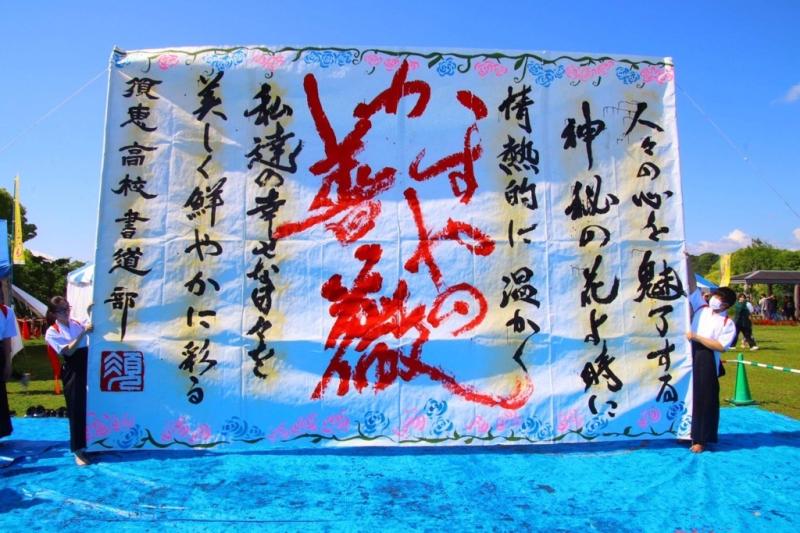 人々の心を魅了する
神秘の花よ時に
情熱的に温かく
かすやの
薔薇
私達の幸せな日々を
美しく鮮やかに彩る
須恵高校書道部